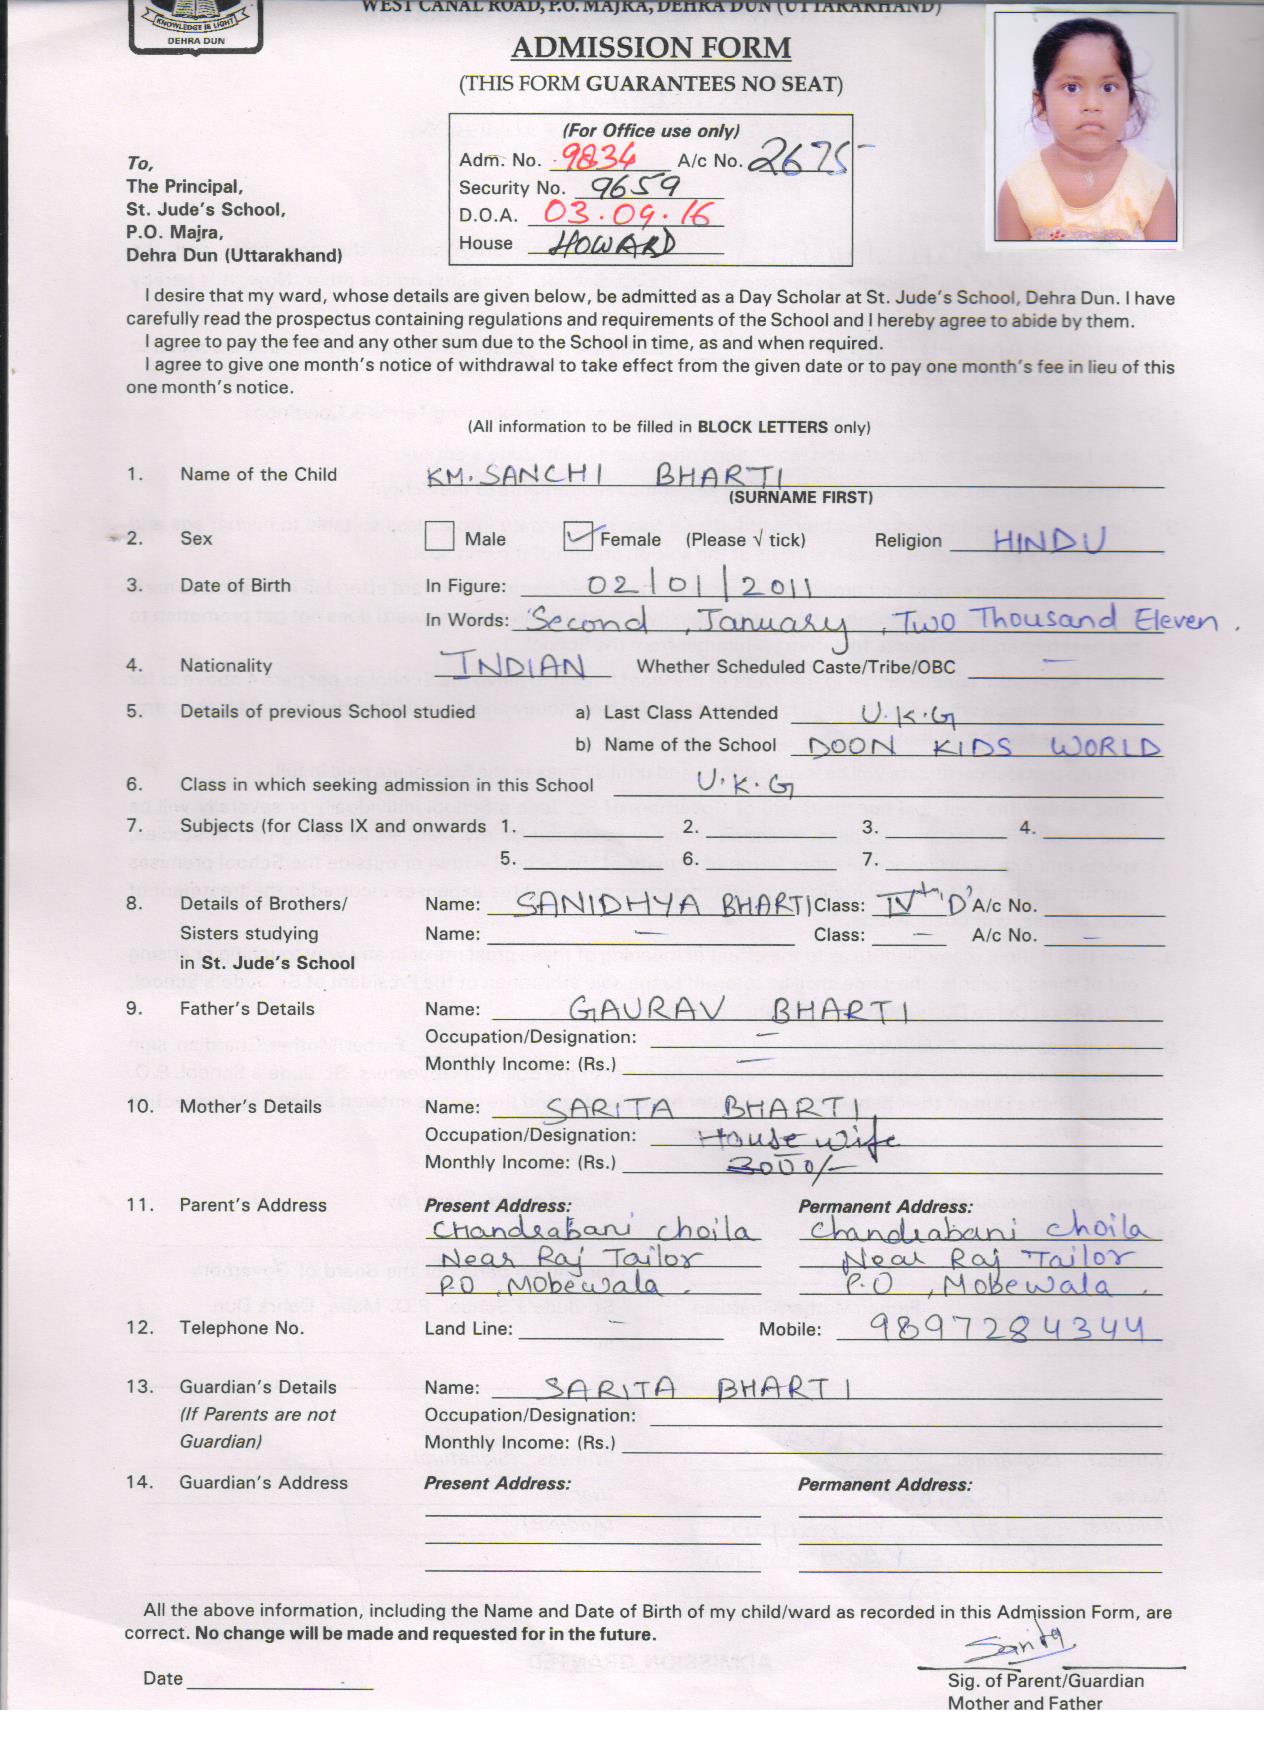 WEST CANAL ROAD, P.O. MAJRA, DEHRA DUN (UTTARAKHAND)
KNOWLEDGE IS LIGHT
DEHRA DUN
ADMISSION FORM
(THIS FORM GUARANTEES NO SEAT)
(For Office use only)
Adm. No. 9834 A/c No. 2675
Security No. 9659
D.O.A. 03.09.16
House HOWARD
To,
The Principal,
St. Jude's School,
P.O. Majra,
Dehra Dun (Uttarakhand)
I desire that my ward, whose details are given below, be admitted as a Day Scholar at St. Jude's School, Dehra Dun. I have
carefully read the prospectus containing regulations and requirements of the School and I hereby agree to abide by them.
I agree to pay the fee and any other sum due to the School in time, as and when required.
I agree to give one month's notice of withdrawal to take effect from the given date or to pay one month's fee in lieu of this
one month's notice.
(All information to be filled in BLOCK LETTERS only)
1. Name of the Child KM. SANCHI BHARTI
(SURNAME FIRST)
2. Sex Male Female (Please √ tick) Religion HINDU
3. Date of Birth In Figure: 02/01/2011
In Words: Second, January, Two Thousand Eleven.
4. Nationality INDIAN Whether Scheduled Caste/Tribe/OBC —
5. Details of previous School studied a) Last Class Attended U.K.G
b) Name of the School DOON KIDS WORLD
6. Class in which seeking admission in this School U.K.G
7. Subjects (for Class IX and onwards 1. 2. 3. 4.
5. 6. 7.
8. Details of Brothers/ Name: SANIDHYA BHARTI Class: IVth 'D' A/c No.
Sisters studying Name: — Class: — A/c No. —
in St. Jude's School
9. Father's Details Name: GAURAV BHARTI
Occupation/Designation: —
Monthly Income: (Rs.) —
10. Mother's Details Name: SARITA BHARTI
Occupation/Designation: House wife
Monthly Income: (Rs.) 3000/-
11. Parent's Address Present Address: Permanent Address:
Chandrabani Choila Chandrabani Choila
Near Raj Tailor Near Raj Tailor
P.O, Mobewala. P.O, Mobewala.
12. Telephone No. Land Line: — Mobile: 9897284344
13. Guardian's Details Name: SARITA BHARTI
(If Parents are not Occupation/Designation:
Guardian) Monthly Income: (Rs.)
14. Guardian's Address Present Address: Permanent Address:
All the above information, including the Name and Date of Birth of my child/ward as recorded in this Admission Form, are
correct. No change will be made and requested for in the future.
Sarita
Date
Sig. of Parent/Guardian
Mother and Father